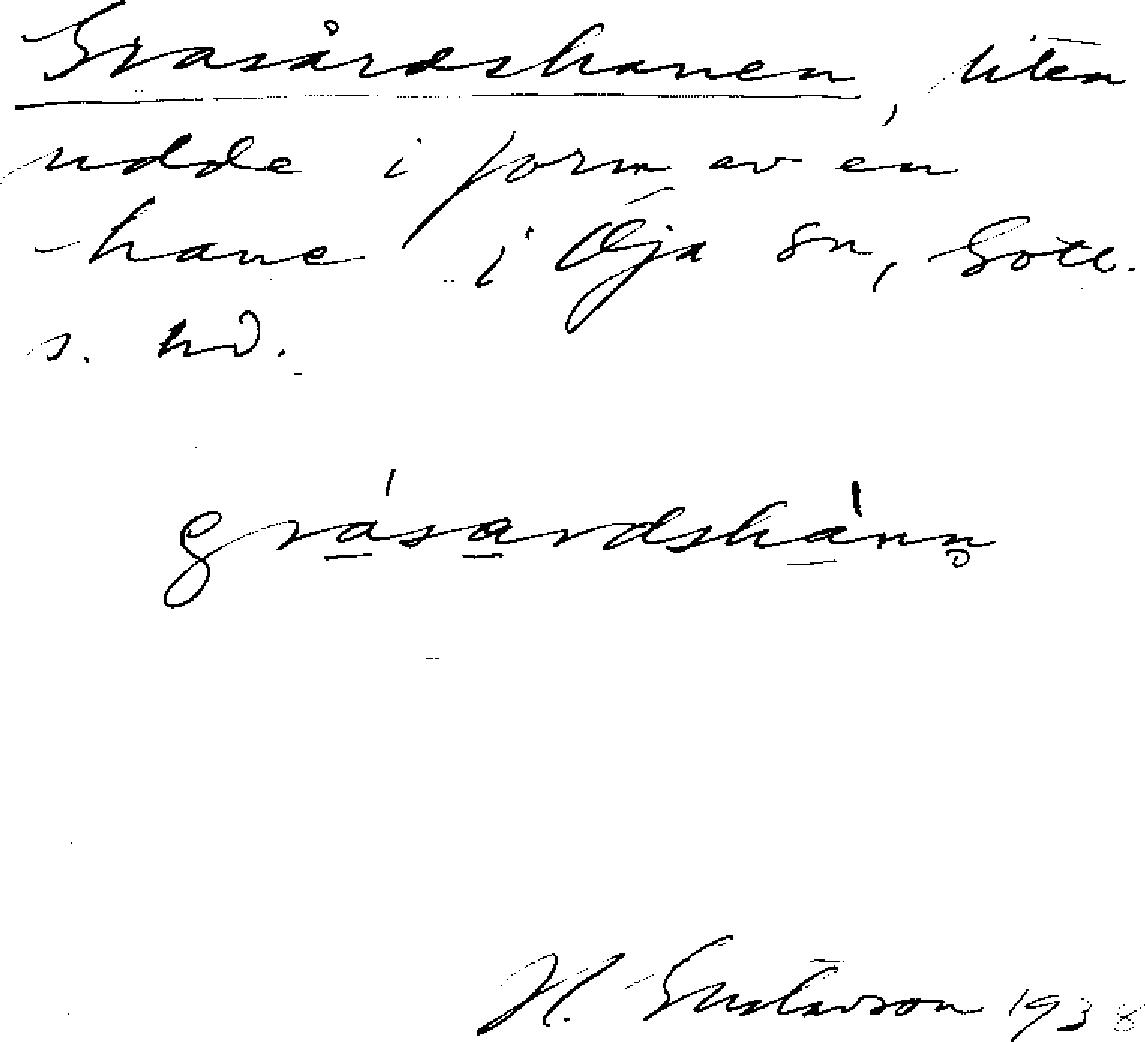 Grasårdshanen, liten
udde i form av en
hane i Öja sn, Gotl.
s. hd.
gra̱´sa̱rdsha̱`nn̥
H. Gustavson 1938